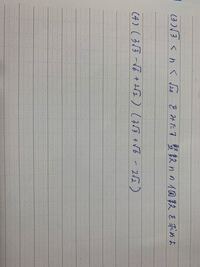 (3) √3 < n < √20 をみたす整数nの個数を求めよ
(4) (3√3-√6+2√2)(3√3+√6-2√2)